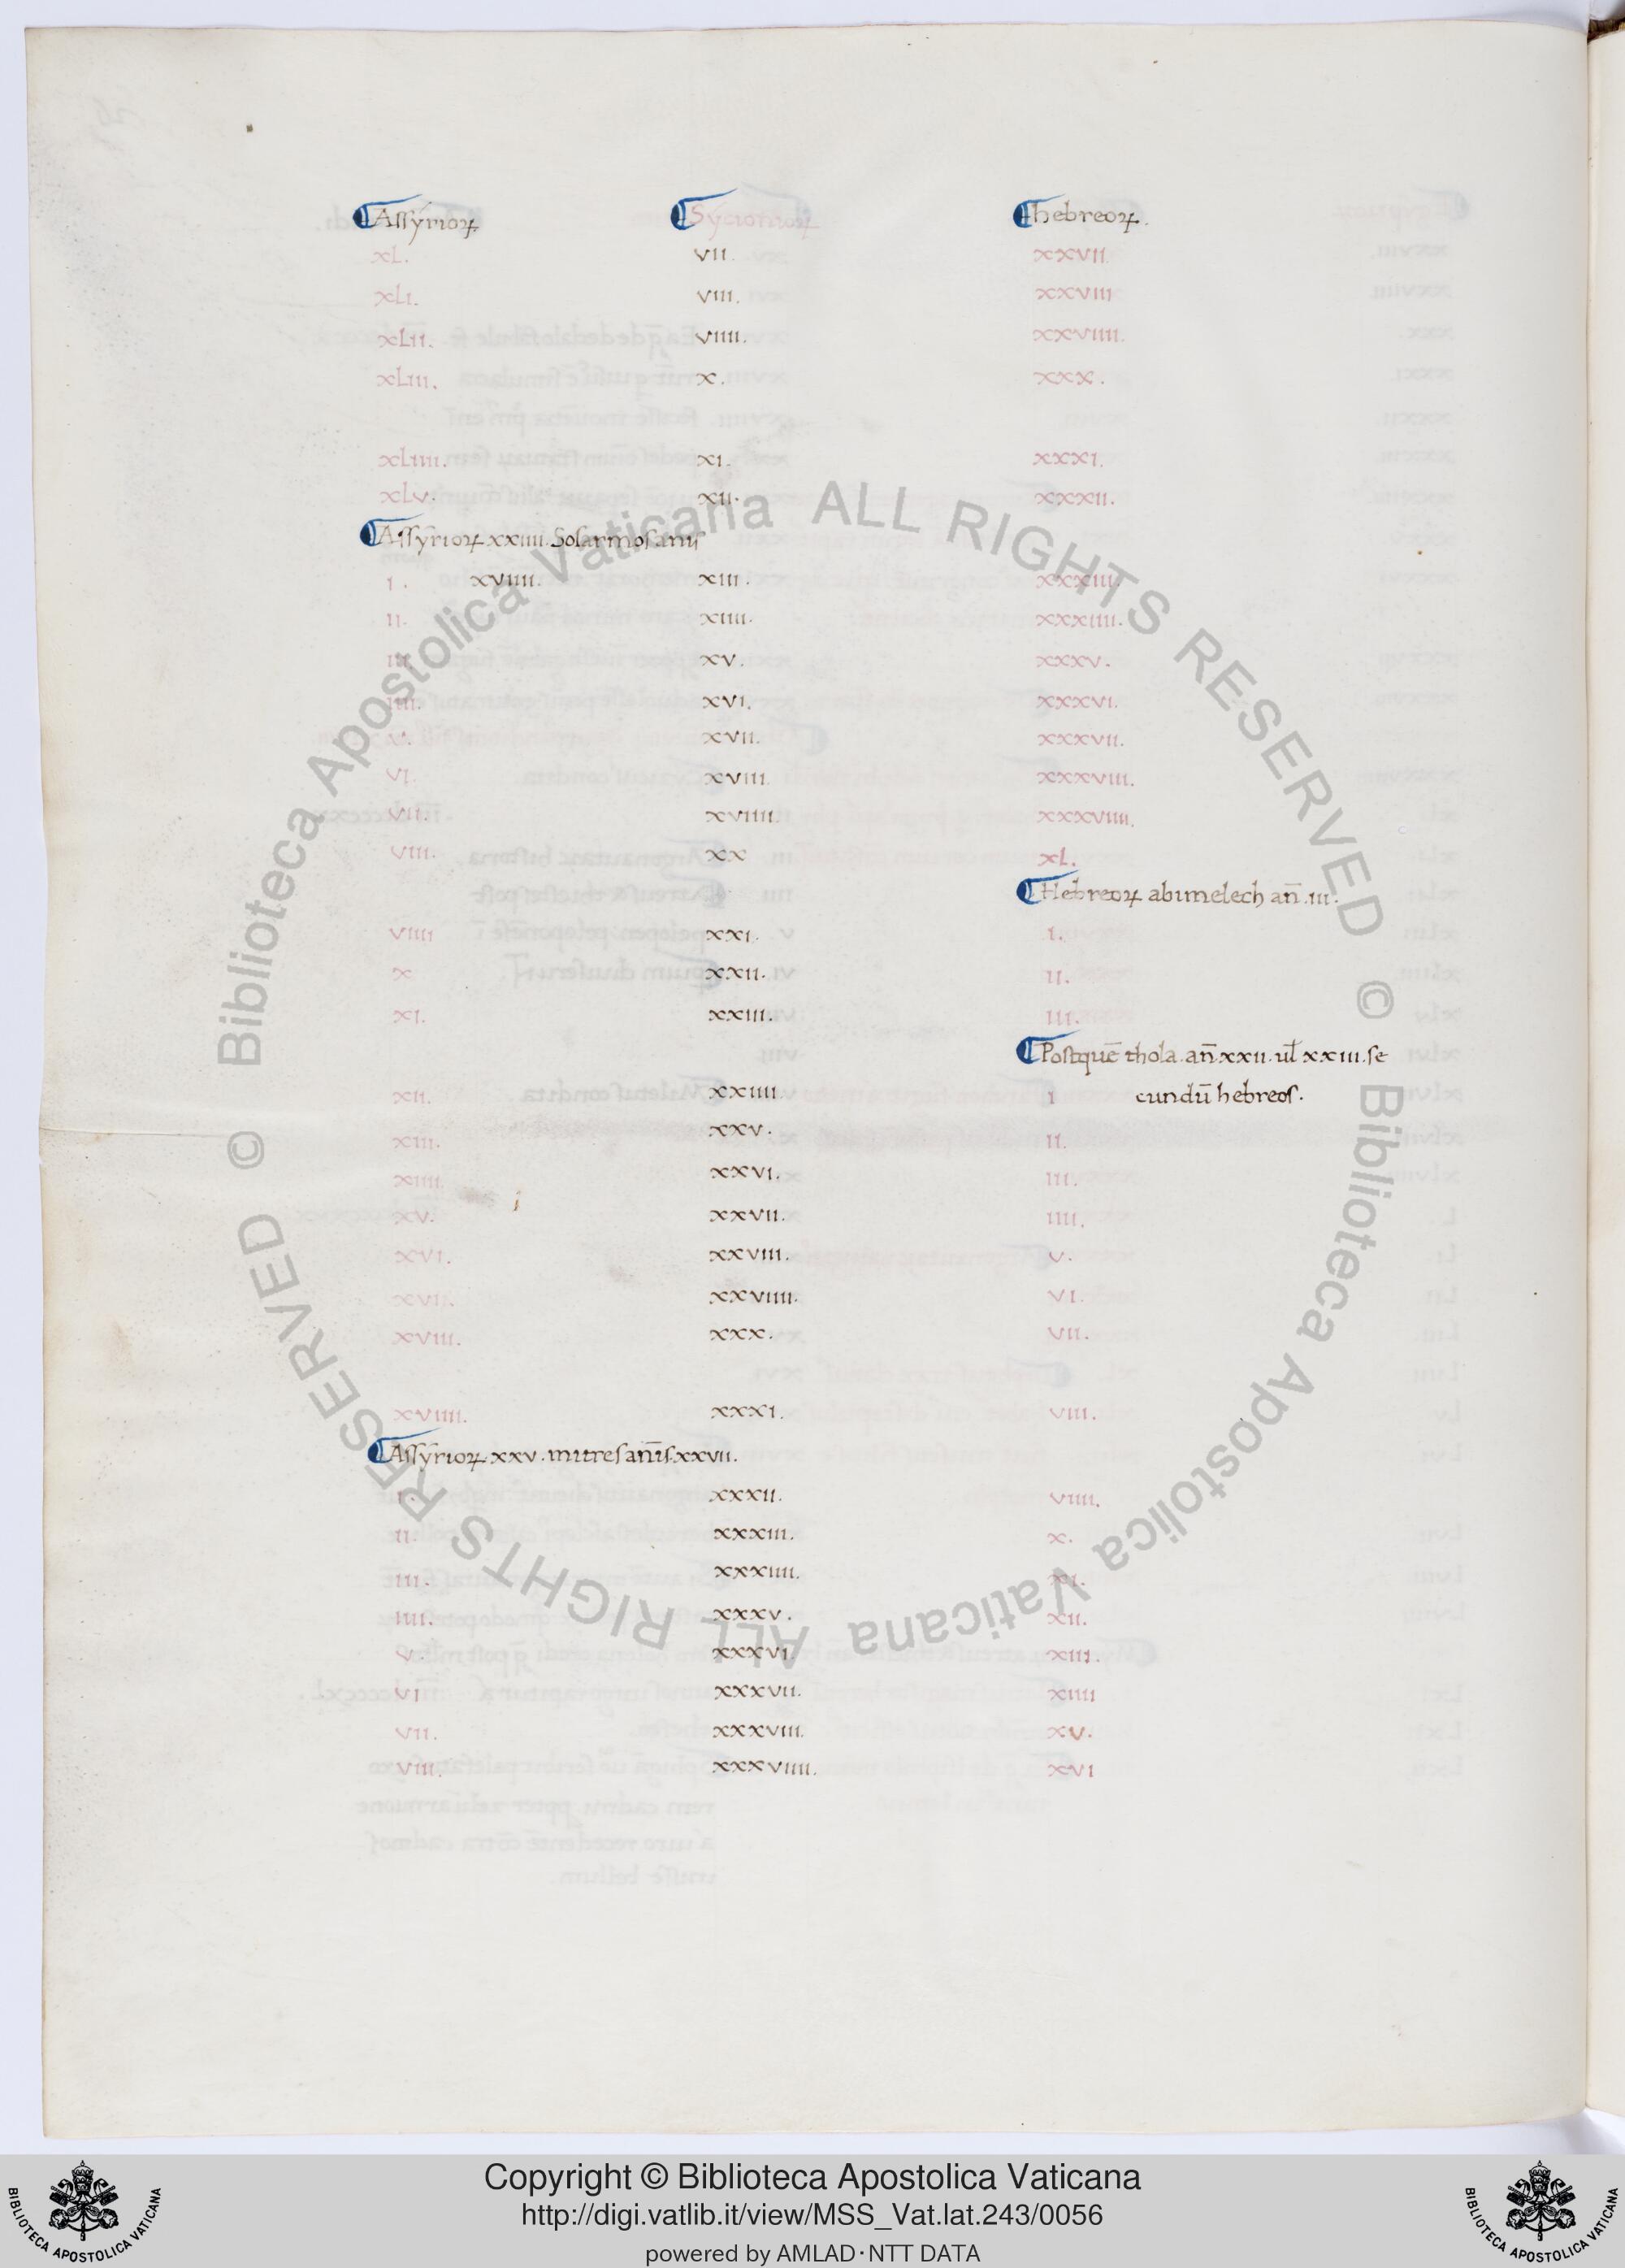 Assyrioꝝ Sycionioꝝ hebreoꝝ.
xL. vii. xxvii.
xLi. viii. xxviii
xLii. viiii. xxviiii.
xLiii. x. xxx.
xLiiii. xi. xxxi.
xLv. xii. xxxii.
Assyrioꝝ xxiiii. Solarmos anis
i. xviiii. xiii. xxxiii.
ii. xiiii. xxxiiii.
iii. xv. xxxv.
iiii. xvi. xxxvi.
v. xvii. xxxvii.
vi. xviii. xxxviii.
vii. xviiii. xxxviiii.
viii. xx xL.
Hebreoꝝ abimelech an̄.iii.
viiii xxi. i.
x xxii. ii.
xi. xxiii. iii.
Postquē thola. an̄.xxii. ul̄ xxiii. se
xii. xxiiii. i cundū hebreos.
xiii. xxv. ii.
xiiii. xxvi. iii.
xv. xxvii. iiii.
xvi. xxviii. v.
xvii. xxviiii. vi.
xviii. xxx. vii.
xviiii. xxxi. viii.
Assyrioꝝ xxv. mitres an̄is.xxvii.
i. xxxii. viiii.
ii. xxxiii. x.
iii. xxxiiii. xi.
iiii. xxxv. xii.
v. xxxvi. xiii.
vi xxxvii. xiiii
vii. xxxviii. xv.
viii. xxxviiii. xvi
© Biblioteca Apostolica Vaticana ALL RIGHTS RESERVED © Biblioteca Apostolica Vaticana ALL RIGHTS RESERVED
Copyright © Biblioteca Apostolica Vaticana
http://digi.vatlib.it/view/MSS_Vat.lat.243/0056
powered by AMLAD·NTT DATA
BIBLIOTECA APOSTOLICA VATICANA
BIBLIOTECA APOSTOLICA VATICANA